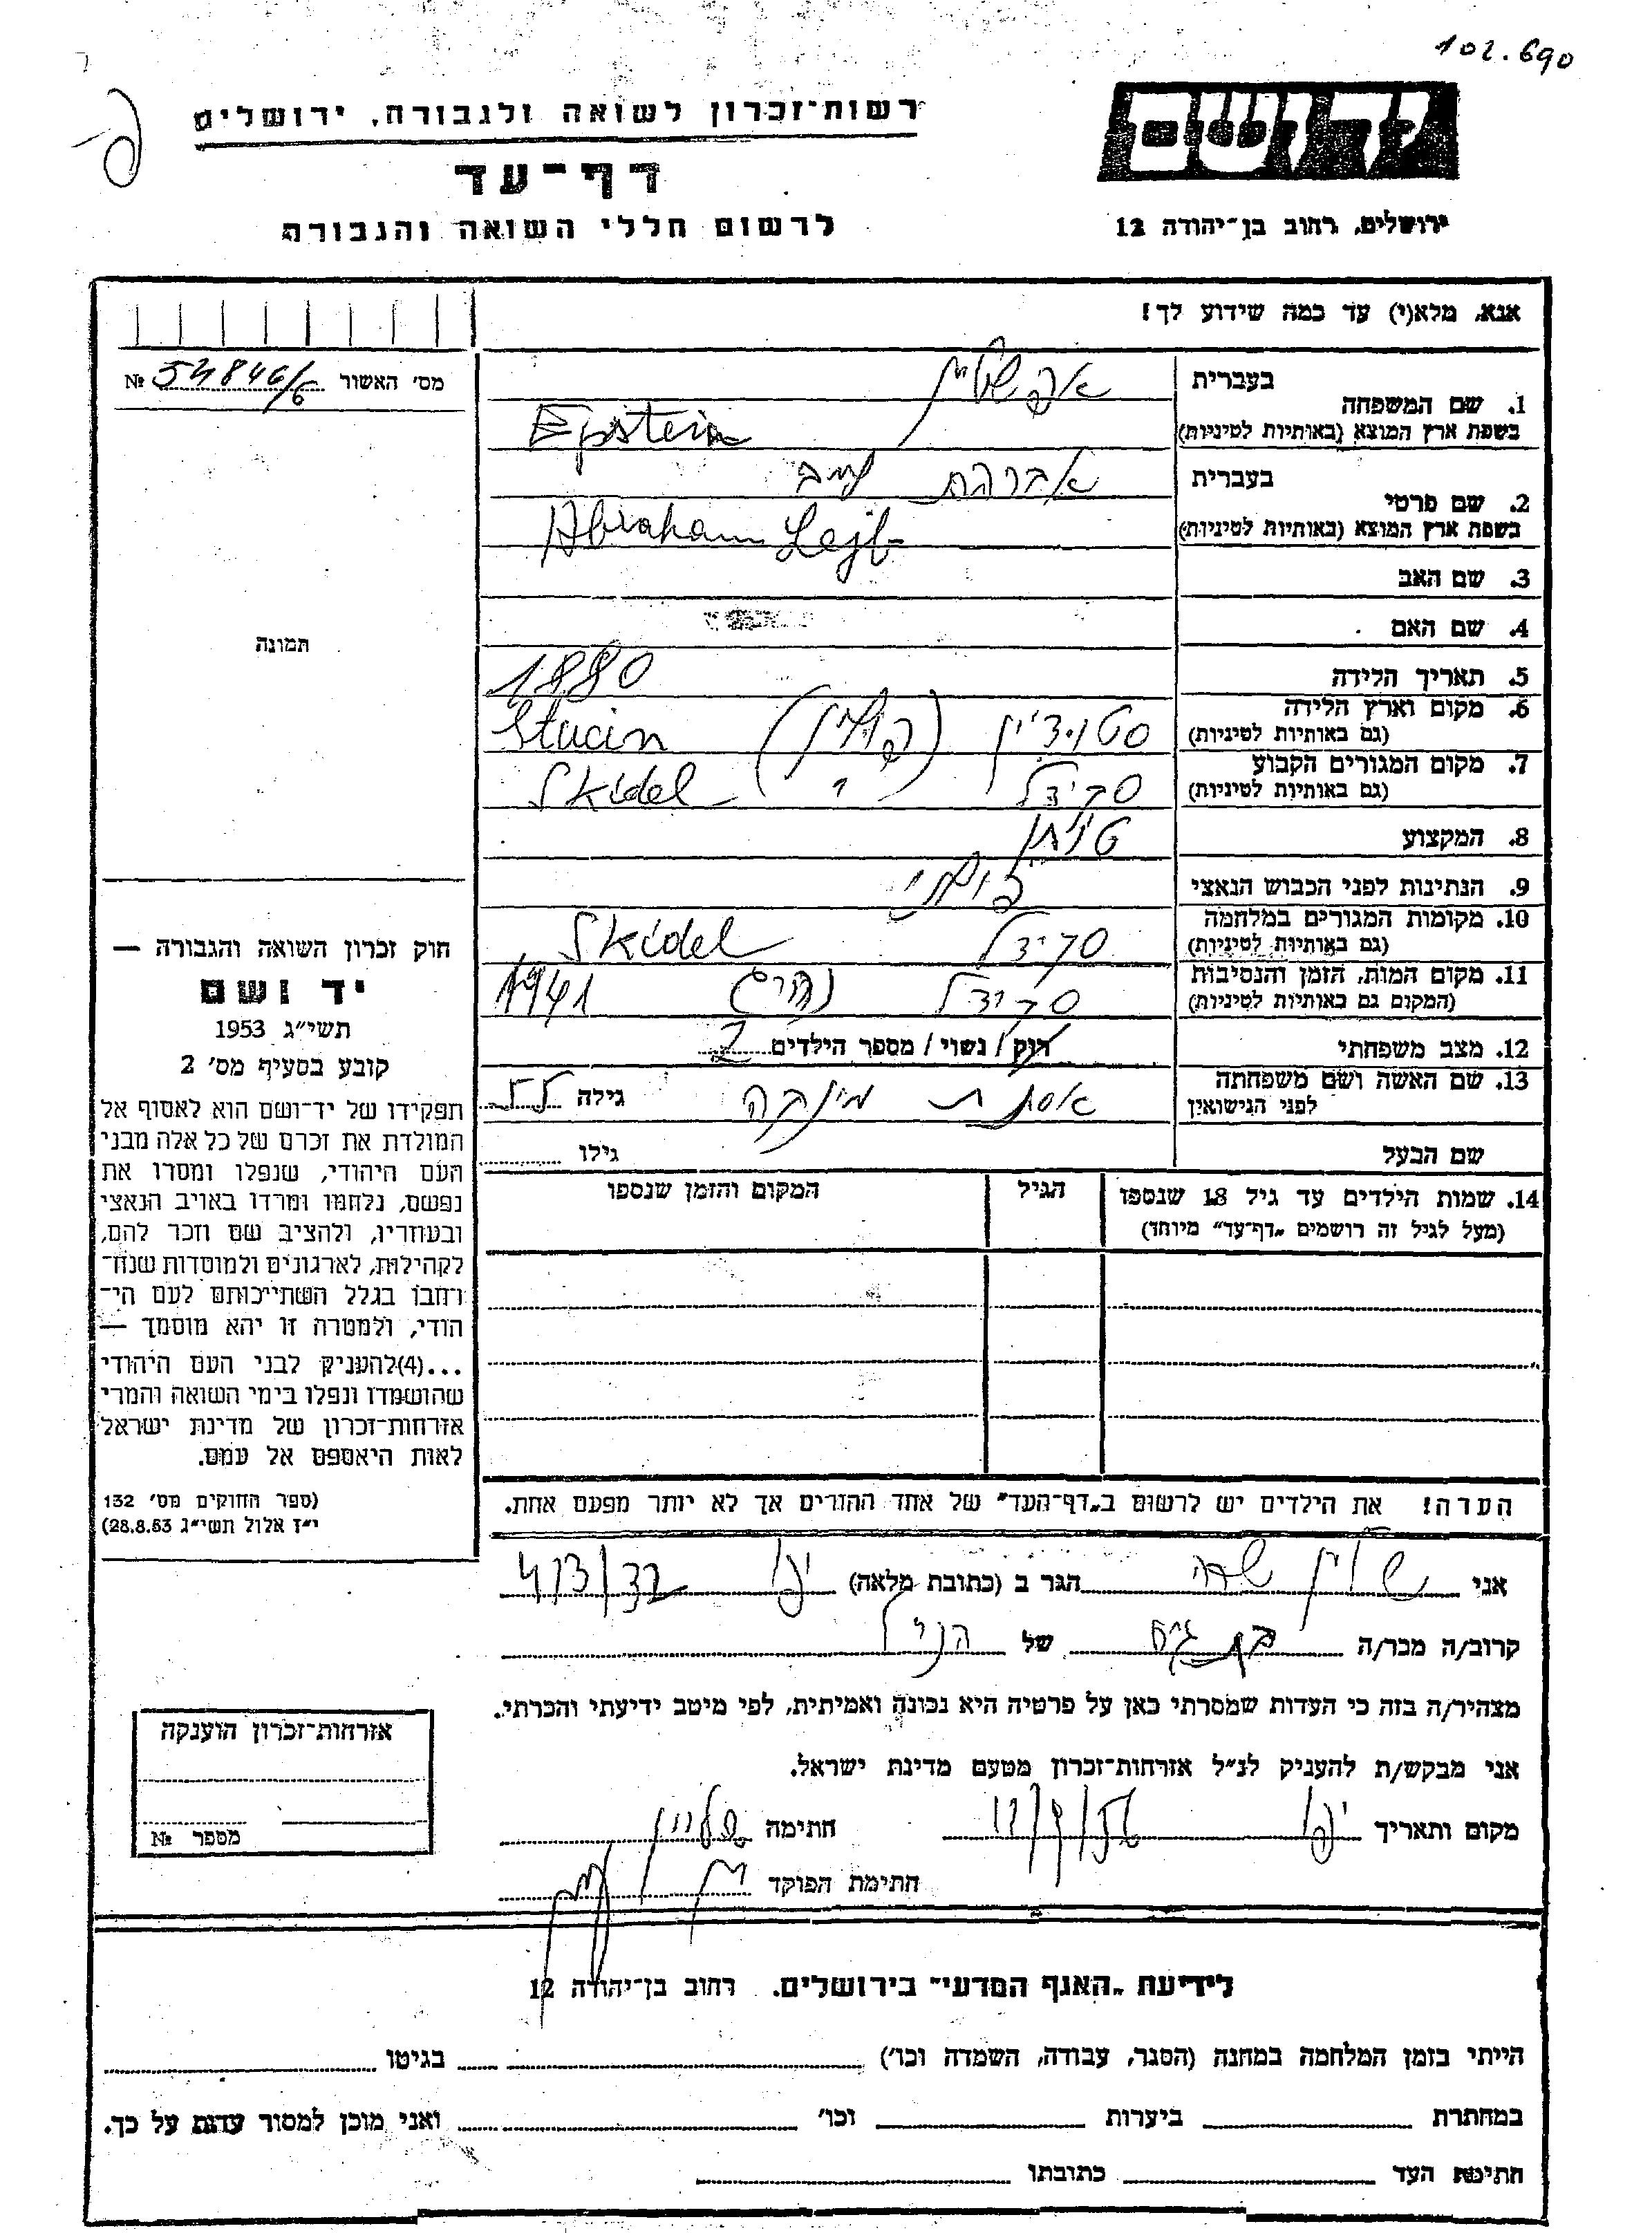 102.690
רשות־זכרון לשואה ולגבורה, ירושלים
ידושם
דף־עד
לרשום חללי השואה והגבורה
ירושלים, רחוב בן־יהודה 12
אנא, מלא(י) עד כמה שידוע לך!
מס׳ האשור № 54846/6
תמונה
1. שם המשפחה
בעברית אפשטיין
בשפת ארץ המוצא (באותיות לטיניות) Epstein
2. שם פרטי
בעברית אברהם לייב
בשפת ארץ המוצא (באותיות לטיניות) Abraham Lejb
3. שם האב
4. שם האם
5. תאריך הלידה 1880
6. מקום וארץ הלידה
(גם באותיות לטיניות) סטוצ׳ין (פולין) Stucin
7. מקום המגורים הקבוע
(גם באותיות לטיניות) סקידל Skidel
8. המקצוע טוחן
9. הנתינות לפני הכבוש הנאצי פולני
10. מקומות המגורים במלחמה
(גם באותיות לטיניות) סקידל Skidel
11. מקום המות, הזמן והנסיבות
(המקום גם באותיות לטיניות) סקידל (נהרג) 1941
12. מצב משפחתי רוק / נשוי / מספר הילדים 2
13. שם האשה ושם משפחתה
לפני הנישואין אסתר מינקה גילה 55
שם הבעל גילו
14. שמות הילדים עד גיל 18 שנספו
(מעל לגיל זה רושמים „דף־עד״ מיוחד)
הגיל
המקום והזמן שנספו
הערה! את הילדים יש לרשום ב„דף־העד״ של אחד ההורים אך לא יותר מפעם אחת.
חוק זכרון השואה והגבורה —
יד ושם
תשי״ג 1953
קובע בסעיף מס׳ 2
תפקידו של יד־ושם הוא לאסוף אל
המולדת את זכרם של כל אלה מבני
העם היהודי, שנפלו ומסרו את
נפשם, נלחמו ומרדו באויב הנאצי
ובעוזריו, ולהציב שם וזכר להם,
לקהילות, לארגונים ולמוסדות שנח־
רבו בגלל השתייכותם לעם הי־
הודי, ולמטרה זו יהא מוסמך —
...(4)להעניק לבני העם היהודי
שהושמדו ונפלו בימי השואה והמרי
אזרחות־זכרון של מדינת ישראל
לאות היאספם אל עמם.
(ספר החוקים מס׳ 132
י״ז אלול תשי״ג 28.8.53)
אני שרה הגר ב (כתובת מלאה) יפו 4/3/32
קרוב/ה מכר/ה בת גיס של הנ״ל
מצהיר/ה בזה כי העדות שמסרתי כאן על פרטיה היא נכונה ואמיתית, לפי מיטב ידיעתי והכרתי.
אני מבקש/ת להעניק לנ״ל אזרחות־זכרון מטעם מדינת ישראל.
מקום ותאריך יפו חתימה
חתימת הפוקד
אזרחות־זכרון הוענקה
מספר №
לידיעת „האגף המדעי״ בירושלים. רחוב בן־יהודה 12
הייתי בזמן המלחמה במחנה (הסגר, עבודה, השמדה וכו׳) בגיטו
במחתרת ביערות וכו׳ ואני מוכן למסור עדות על כך.
חתימת העד כתובתו